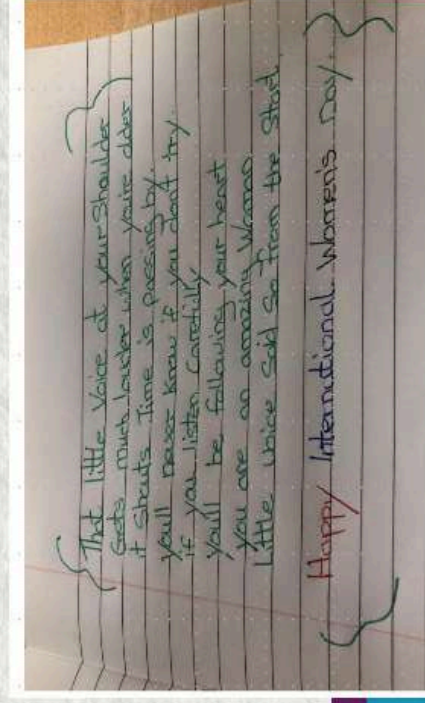 That little voice at your Shoulder
Gets much louder when you're older
it shouts Time is passing by
You'll never know if you don't try.
if you listen Carefully
You'll be following your heart
You are an amazing Woman
Little voice said so from the Start.
Happy International Women's Day.